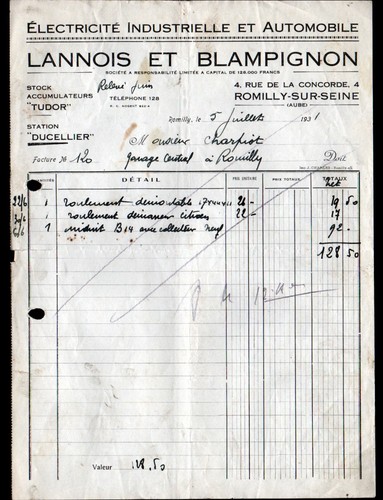 ÉLECTRICITÉ INDUSTRIELLE ET AUTOMOBILE
LANNOIS ET BLAMPIGNON
SOCIÉTÉ A RESPONSABILITÉ LIMITÉE A CAPITAL DE 125.000 FRANCS
STOCK
ACCUMULATEURS
"TUDOR"
Relevé Juin
TÉLÉPHONE 128
4, RUE DE LA CONCORDE, 4
ROMILLY-SUR-SEINE
(AUBE)
STATION
"DUCELLIER"
Romilly, le 5 juillet 1931
Monsieur Charpiot
Garage Central à Romilly
Facture № 120
Doit
DÉTAIL
PRIX UNITAIRE
PRIX TOTAUX
TOTAUX
Net
22/6 1 roulement 26 - 19 50
1 roulement démarreur citroen 22 - 17
1 induit B14 avec collecteur neuf 92 -
128 50
Valeur 128.50